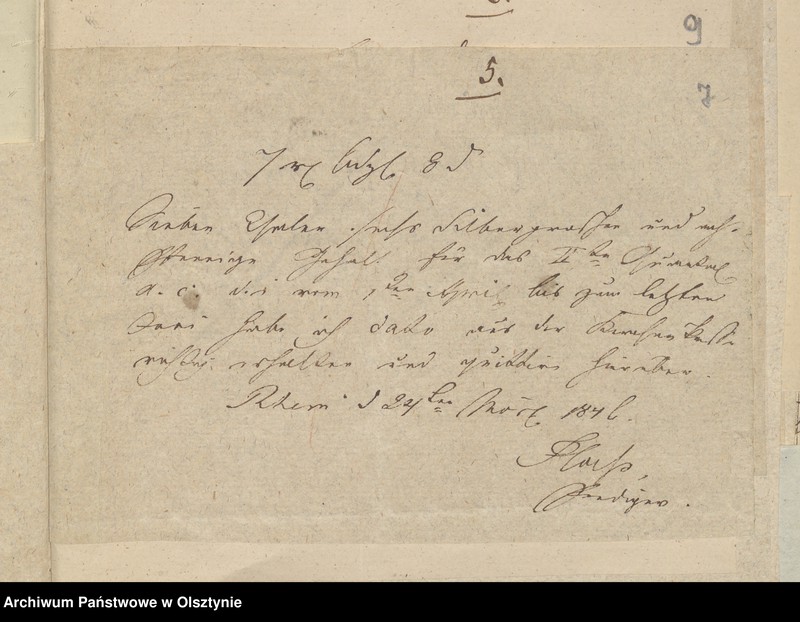 9
5.
7
7 rℓ 6 Sgl. 8 d
Sieben Thaler sechs Silbergroschen und acht
Pfennige Gehalt für das IIte Quartal
a. c. d. i. vom 1ten April bis zum letzten
Juni habe ich dato aus der Kirchen Kasse
richtig erhalten und quittire hierüber.
Rhein d 24ten März 1846.
Prediger.
Archiwum Państwowe w Olsztynie